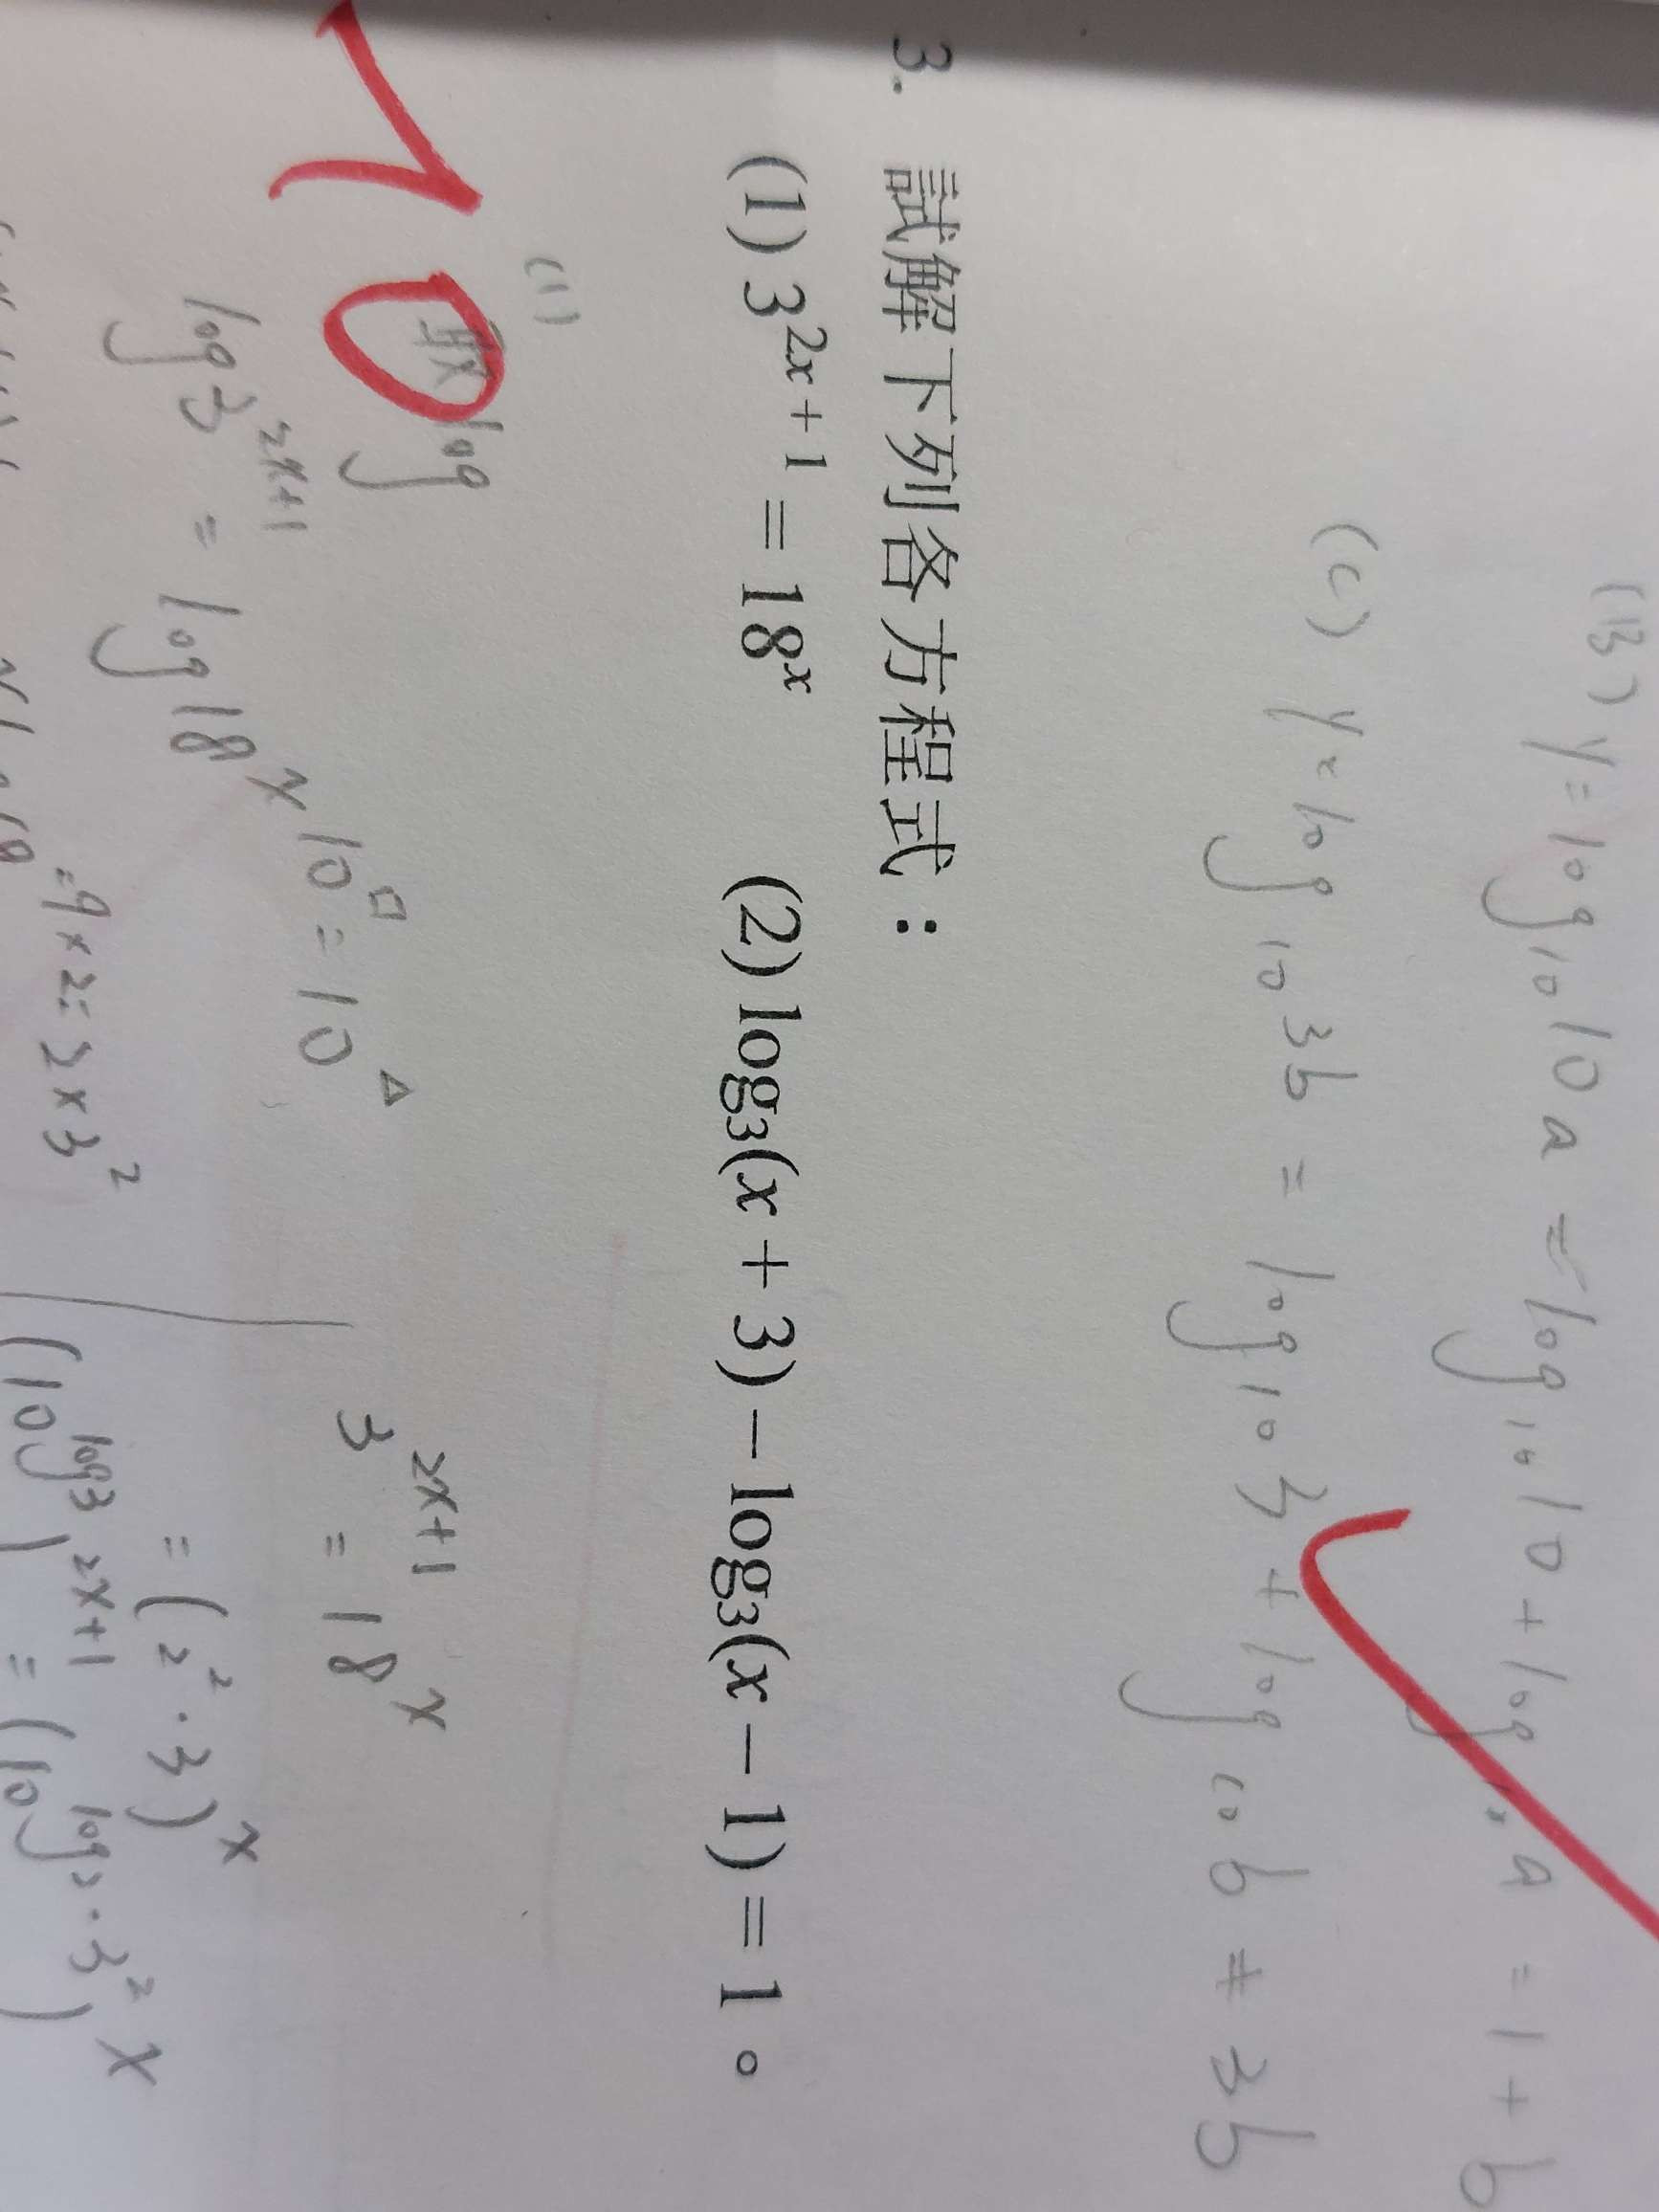 (B) y = log₁₀10a = log₁₀10 + log₁₀a = 1 + b
(c) y = log₁₀3b = log₁₀3 + log₁₀b ≠ 3b
3. 試解下列各方程式：
(1) 3^{2x+1} = 18^x (2) log₃(x + 3) − log₃(x − 1) = 1。
(1)
取 log
log 3^{2x+1} = log 18^x
10^□ = 10^△
= 9 × 2 = 2 × 3²
3^{2x+1} = 18^x
= (2² · 3)^x
(10^{log3})^{2x+1} = (10^{log2} · 3²)^x